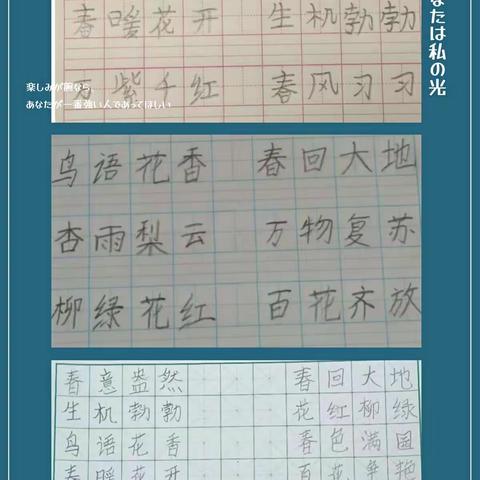 春暖花开 生机勃勃
万紫千红 春风习习
なたは私の光
楽しみが腕なら、
あなたが一番強い人であってほしい
鸟语花香 春回大地
杏雨梨云 万物复苏
柳绿花红 百花齐放
春意盎然 春回大地
生机勃勃 花红柳绿
鸟语花香 春色满园
春暖花开 百花争艳